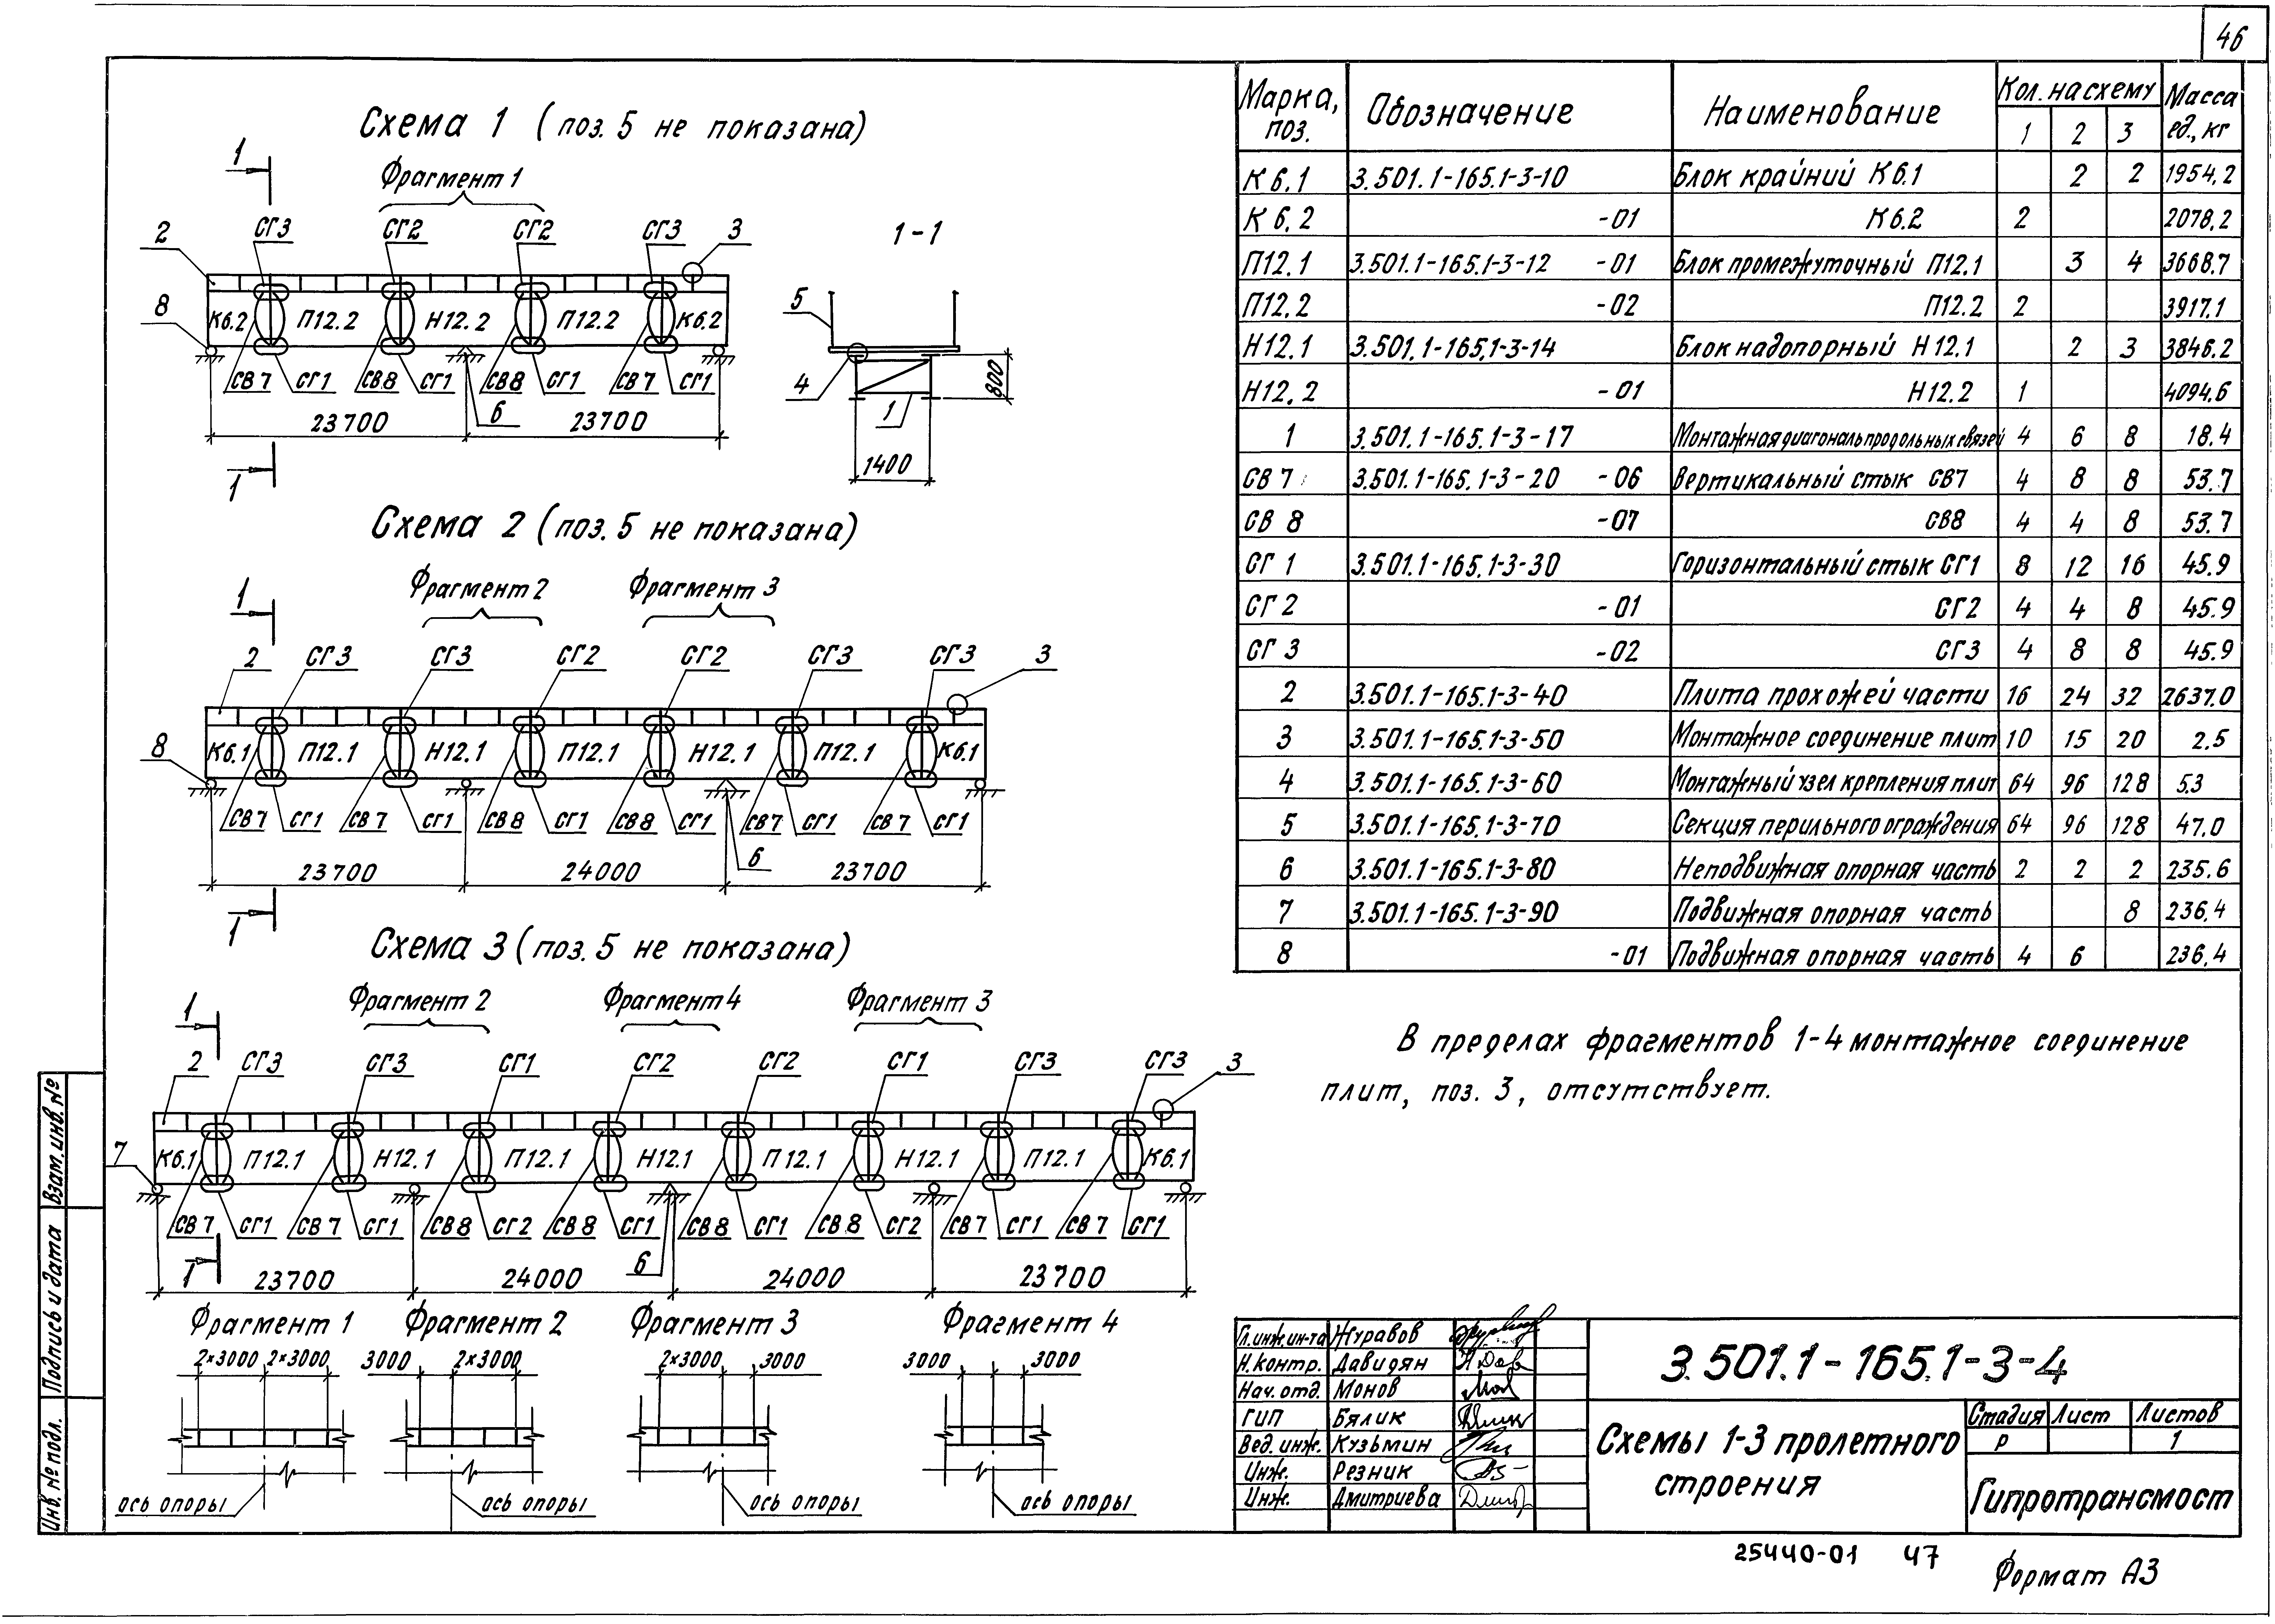 46
Схема 1 (поз. 5 не показана)
1
Фрагмент 1
2 СГ3 СГ2 СГ2 СГ3 3
1-1
8 К6.2 П12.2 Н12.2 П12.2 К6.2
СВ7 СГ1 СВ8 СГ1 СВ8 СГ1 СВ7 СГ1
6
23700 23700
1
5
4
1
800
1400
Схема 2 (поз. 5 не показана)
1
Фрагмент 2 Фрагмент 3
2 СГ3 СГ3 СГ2 СГ2 СГ3 СГ3 3
8 К6.1 П12.1 Н12.1 П12.1 Н12.1 П12.1 К6.1
СВ7 СГ1 СВ7 СГ1 СВ8 СГ1 СВ8 СГ1 СВ7 СГ1 СВ7 СГ1
6
23700 24000 23700
1
Схема 3 (поз. 5 не показана)
1
Фрагмент 2 Фрагмент 4 Фрагмент 3
2 СГ3 СГ3 СГ1 СГ2 СГ2 СГ1 СГ3 СГ3 3
7 К6.1 П12.1 Н12.1 П12.1 Н12.1 П12.1 Н12.1 П12.1 К6.1
СВ7 СГ1 СВ7 СГ1 СВ8 СГ2 СВ8 СГ1 СВ8 СГ1 СВ8 СГ2 СВ7 СГ1 СВ7 СГ1
1
6
23700 24000 24000 23700
Фрагмент 1 Фрагмент 2 Фрагмент 3 Фрагмент 4
2×3000 2×3000 3000 2×3000 2×3000 3000 3000 3000
ось опоры ось опоры ось опоры ось опоры
Марка, поз. Обозначение Наименование Кол. на схему Масса ед., кг
1 2 3
К6.1 3.501.1-165.1-3-10 Блок крайний К6.1 2 2 1954,2
К6.2 -01 К6.2 2 2078,2
П12.1 3.501.1-165.1-3-12 -01 Блок промежуточный П12.1 3 4 3668.7
П12.2 -02 П12.2 2 3917.1
Н12.1 3.501.1-165.1-3-14 Блок надопорный Н12.1 2 3 3846.2
Н12.2 -01 Н12.2 1 4094.6
1 3.501.1-165.1-3-17 Монтажная диагональ продольных связей 4 6 8 18.4
СВ 7 3.501.1-165.1-3-20 -06 Вертикальный стык СВ7 4 8 8 53.7
СВ 8 -07 СВ8 4 4 8 53.7
СГ 1 3.501.1-165.1-3-30 Горизонтальный стык СГ1 8 12 16 45.9
СГ 2 -01 СГ2 4 4 8 45.9
СГ 3 -02 СГ3 4 8 8 45.9
2 3.501.1-165.1-3-40 Плита прохожей части 16 24 32 2637.0
3 3.501.1-165.1-3-50 Монтажное соединение плит 10 15 20 2.5
4 3.501.1-165.1-3-60 Монтажный узел крепления плит 64 96 128 5.3
5 3.501.1-165.1-3-70 Секция перильного ограждения 64 96 128 47.0
6 3.501.1-165.1-3-80 Неподвижная опорная часть 2 2 2 235.6
7 3.501.1-165.1-3-90 Подвижная опорная часть 8 236.4
8 -01 Подвижная опорная часть 4 6 236.4
В пределах фрагментов 1-4 монтажное соединение
плит, поз. 3, отсутствует.
Взам. инв. №
Подпись и дата
Инв. № подл.
Гл. инж. ин-та Журавов
Н. контр. Давидян
Нач. отд. Монов
ГИП Бялик
Вед. инж. Кузьмин
Инж. Резник
Инж. Дмитриева
3.501.1-165.1-3-4
Схемы 1-3 пролетного
строения
Стадия Лист Листов
Р 1
Гипротрансмост
25440-01 47
Формат А3